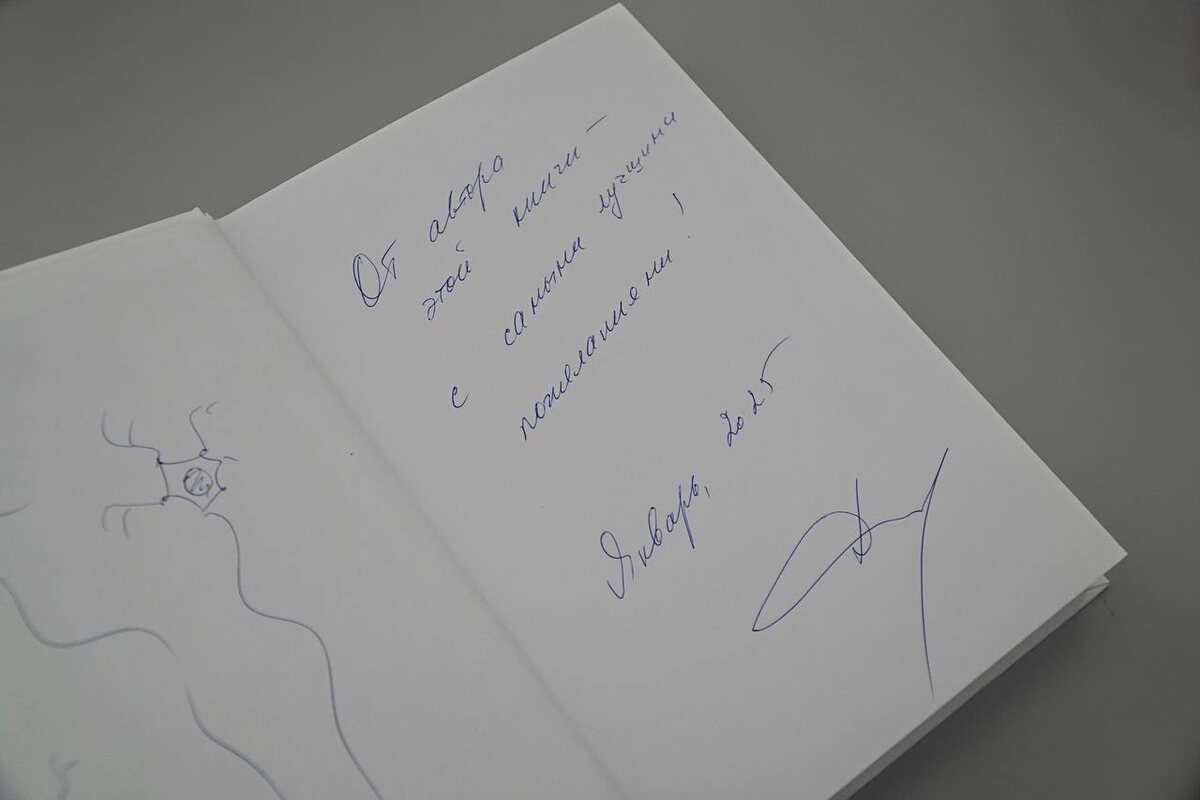 От автора
этой книги –
с самыми лучшими
пожеланиями!
Январь, 2025